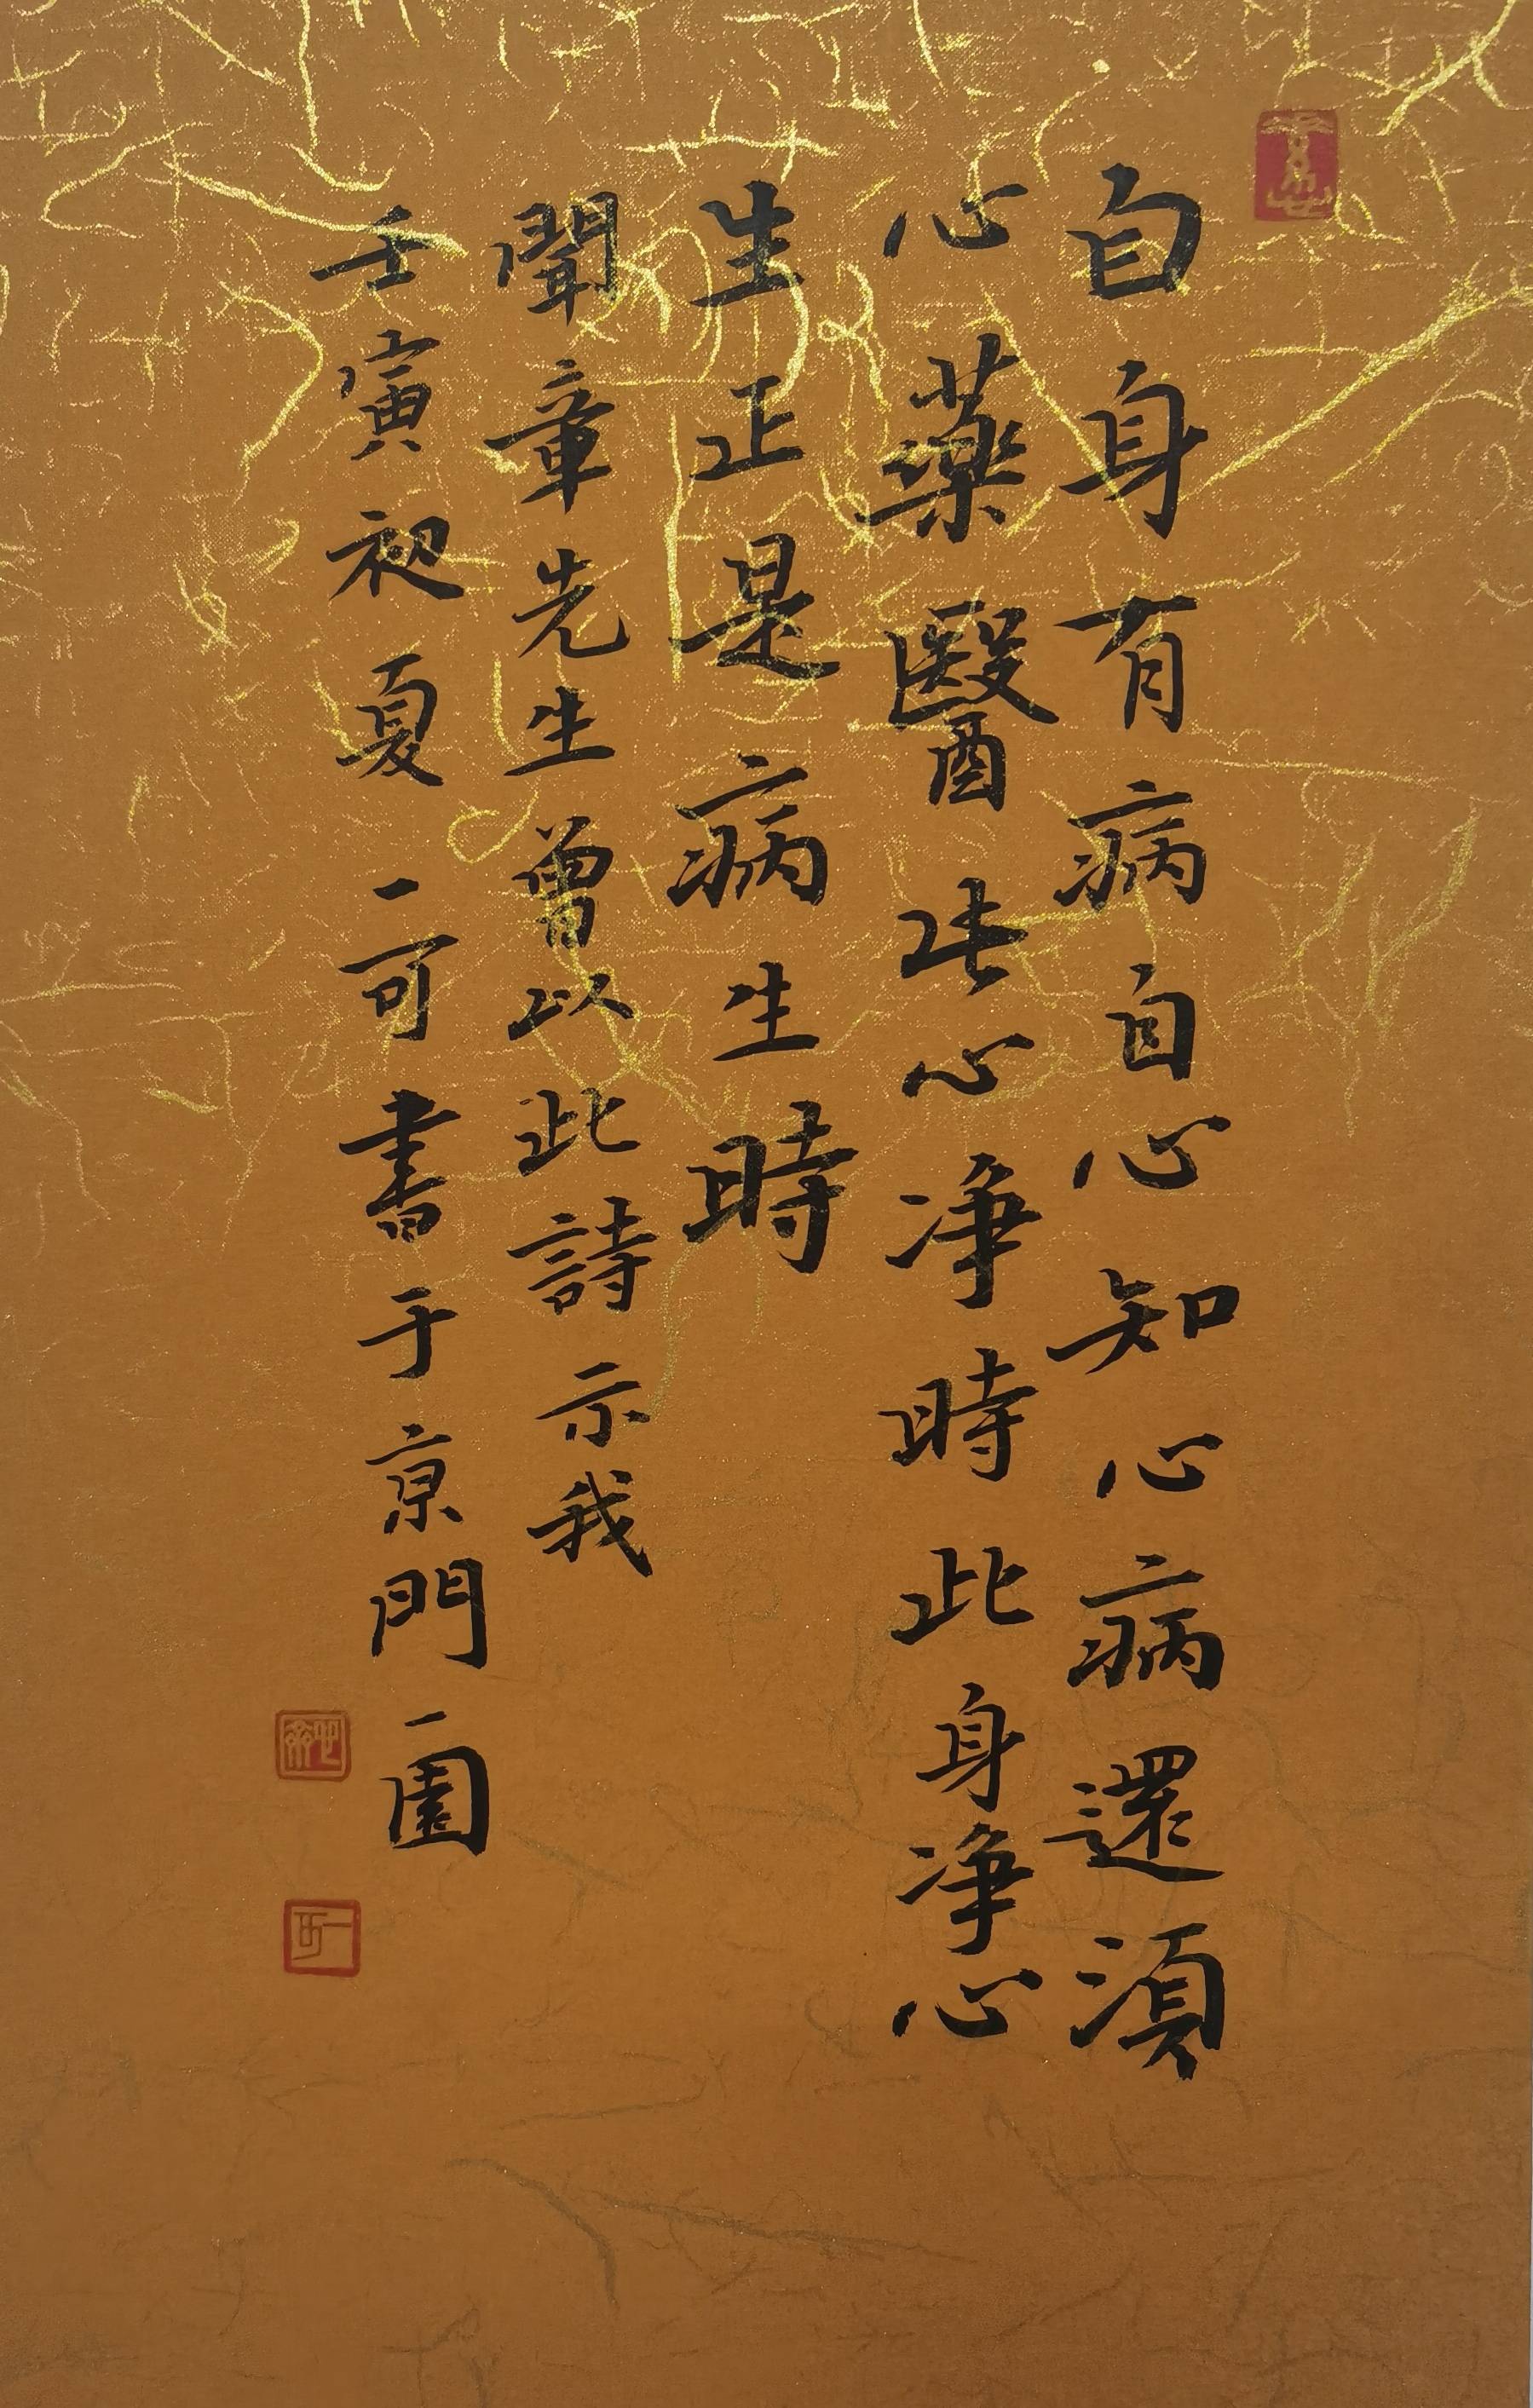 自身有病自心知心病還須
心藥醫此心净時此身净心
生正是病生時
聞章先生曾以此詩示我
壬寅初夏一可書于京門一園
一可